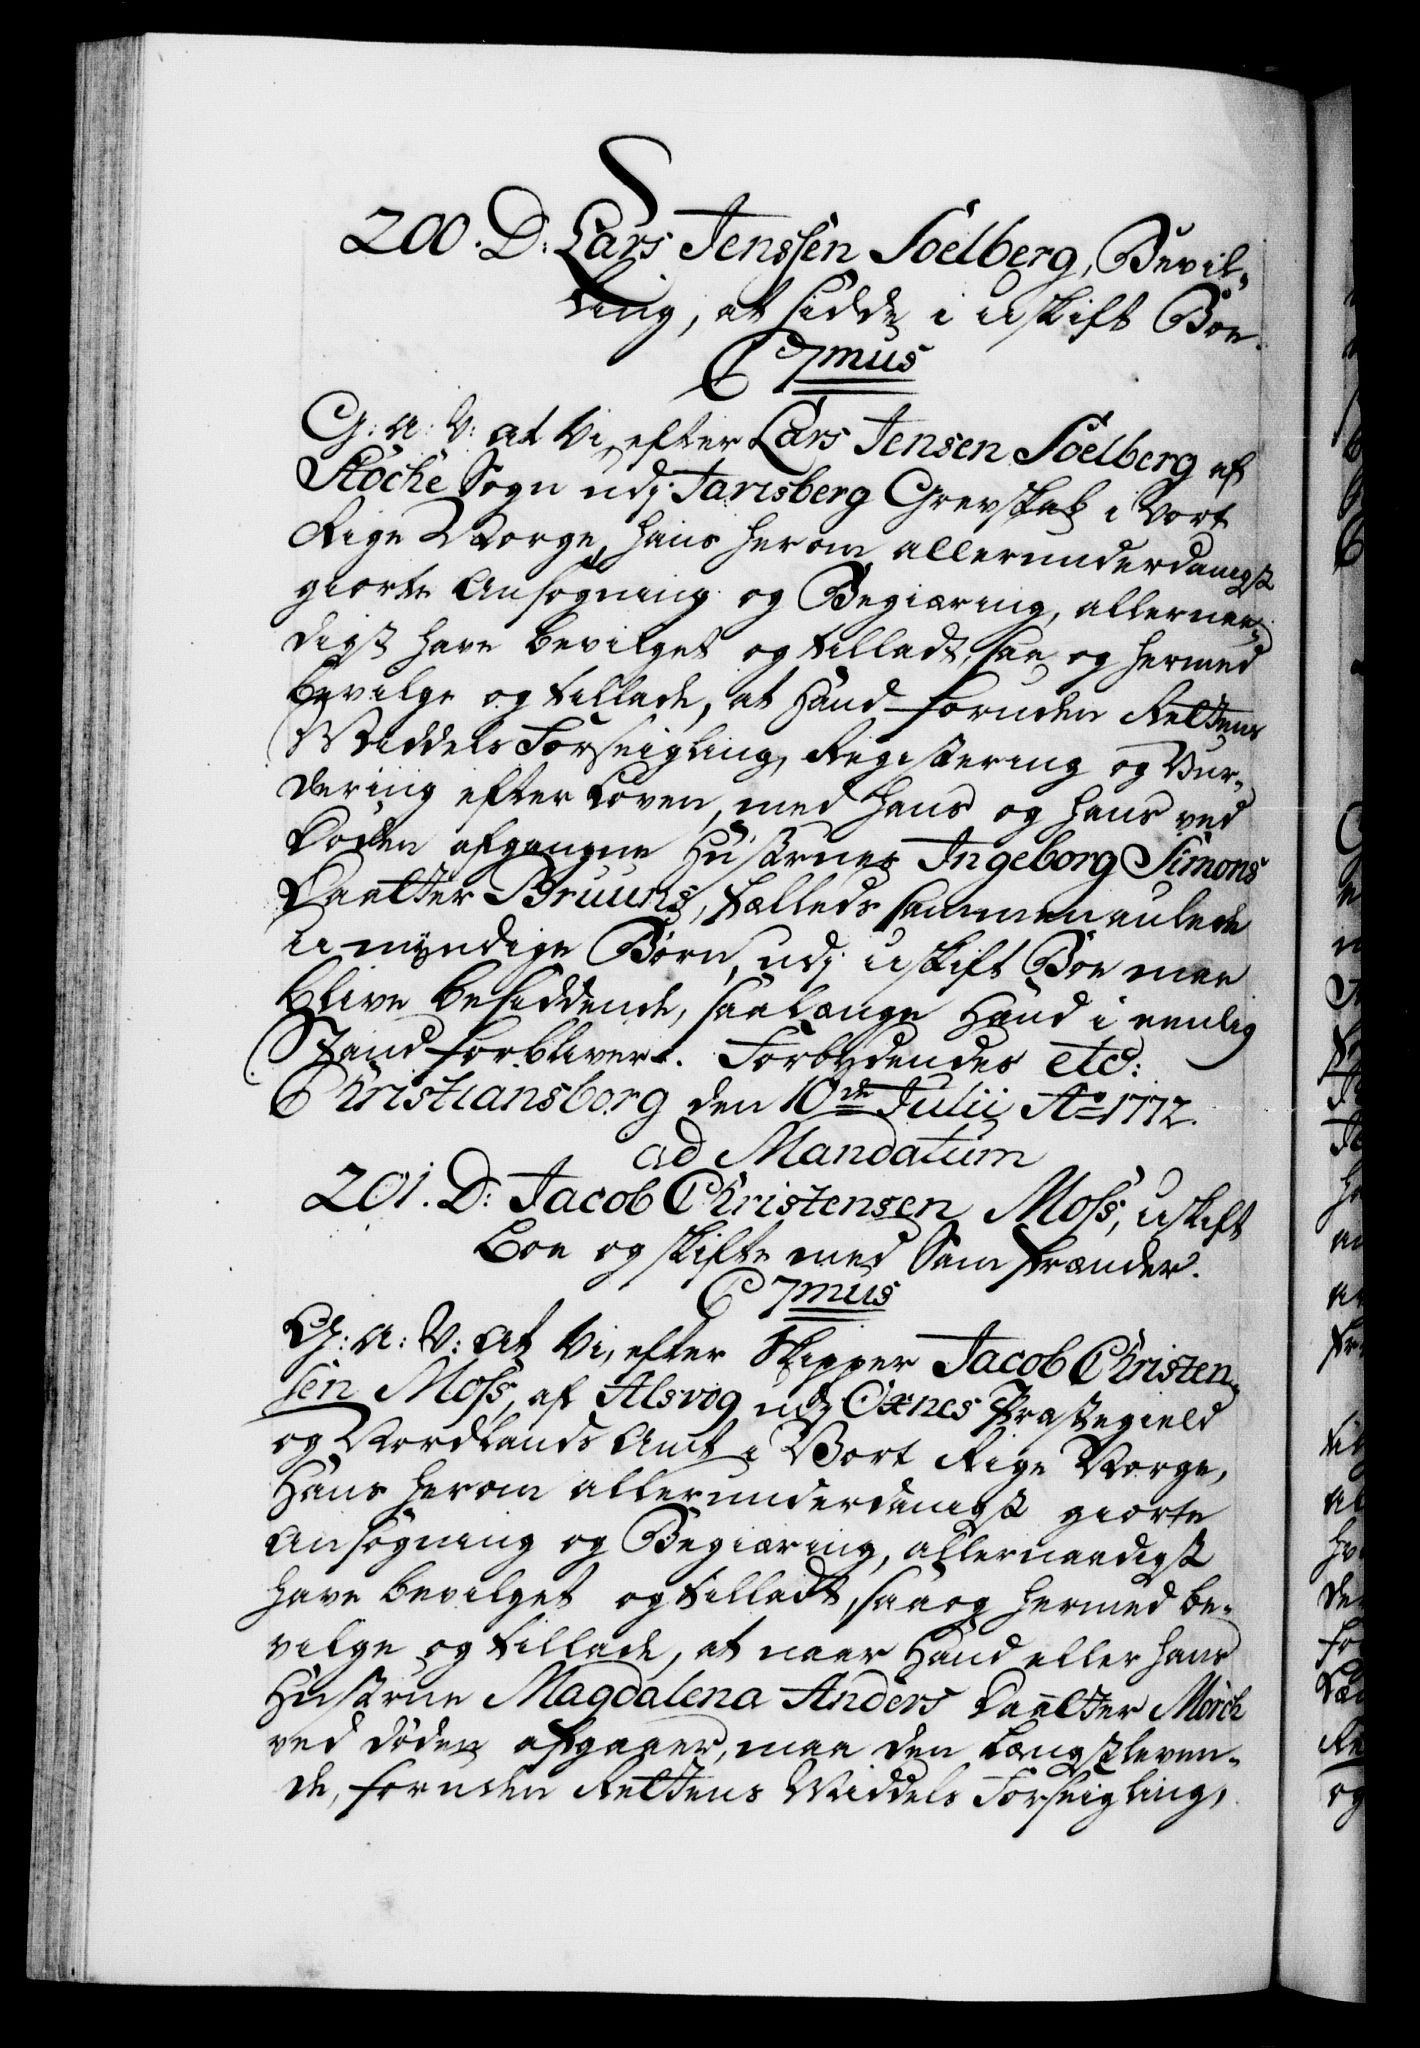 200. D: Lars Jenssen Soelberg, Bevil-
ling, at sidde i uskift Boe.
C 7mus
G: A: V: at Vi, efter Lars Jensen Soelberg af
Skoche Sogn udj Jarlsberg Grevskab i Vort
Rige Norge, hans herom allerunderdanigst
giorte Ansøgning og Begiæring, allernaa-
digst have bevilget og tilladt, saa og hermed
bevilge og tillade, at Hand foruden Rettens
Middels Forseigling, Registering og Vur-
dering efter Loven, med hans og hans ved
Døden afgangne Hustrues Ingeborg Simons
Daatter Bruuns, fælleds sammenavlede
umyndige Børn, udj uskift Boe maa
blive besiddende, saalænge Hand i eenlig
Stand forbliver. Forbydendes etc:
Christiansborg den 10de Julii Ao 1772.
ad Mandatum
201. D: Jacob Christensen Moss, uskift
Boe og skifte med Samfrænder.
C 7mus
G: A: V: at Vi, efter Skipper Jacob Christen-
sen Moss, af Alsvog udj Øxnes Præstegield
og Nordlands Amt i Vort Rige Norge,
Hans herom allerunderdanigst giorte
Ansøgning og Begiæring, allernaadigst
have bevilget og tilladt, saa og hermed be-
vilge og tillade, at naar Hand eller hans
Hustrue Magdalena Anders Daatter Mörch
ved Døden afgaaer, maa den Længstleven-
de, foruden Rettens Middels Forseigling,